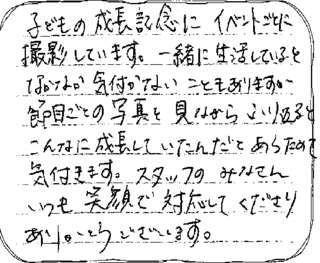 子どもの成長記念に イベントごとに
撮影しています。一緒に生活していると
なかなか気付かない こともありますが
節目ごとの写真を見ながら ふり返ると
こんなに成長していたんだと あらためて
気付きます。スタッフの みなさん
いつも 笑顔で 対応してくださり
ありがとうございます。